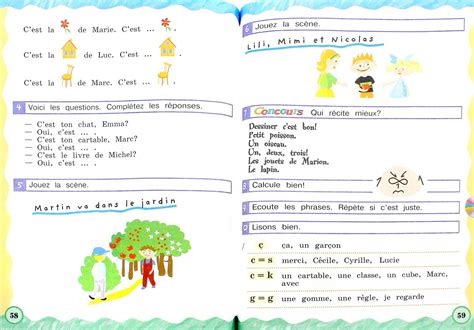 C'est la de Marie. C'est ... .
C'est la de Luc. C'est ... .
C'est la de Marc. C'est ... .
4 Voici les questions. Complétez les réponses.
— C'est ton chat, Emma?
— Oui, c'est ... .
— C'est ton cartable, Marc?
— Oui, c'est ... .
— C'est le livre de Michel?
— Oui, c'est ... .
5 Jouez la scène.
Martin va dans le jardin
58
6 Jouez la scène.
Lili, Mimi et Nicolas
7 Concours Qui récite mieux?
Dessiner c'est bon!
Petit poisson.
Un oiseau.
Un, deux, trois!
Les jouets de Marion.
Le lapin.
8 Calcule bien!
9 Ecoute les phrases. Répète si c'est juste.
0 Lisons bien.
ç ça, un garçon
c = s merci, Cécile, Cyrille, Lucie
c = k un cartable, une classe, un cube, Marc, avec
g = g une gomme, une règle, je regarde
59